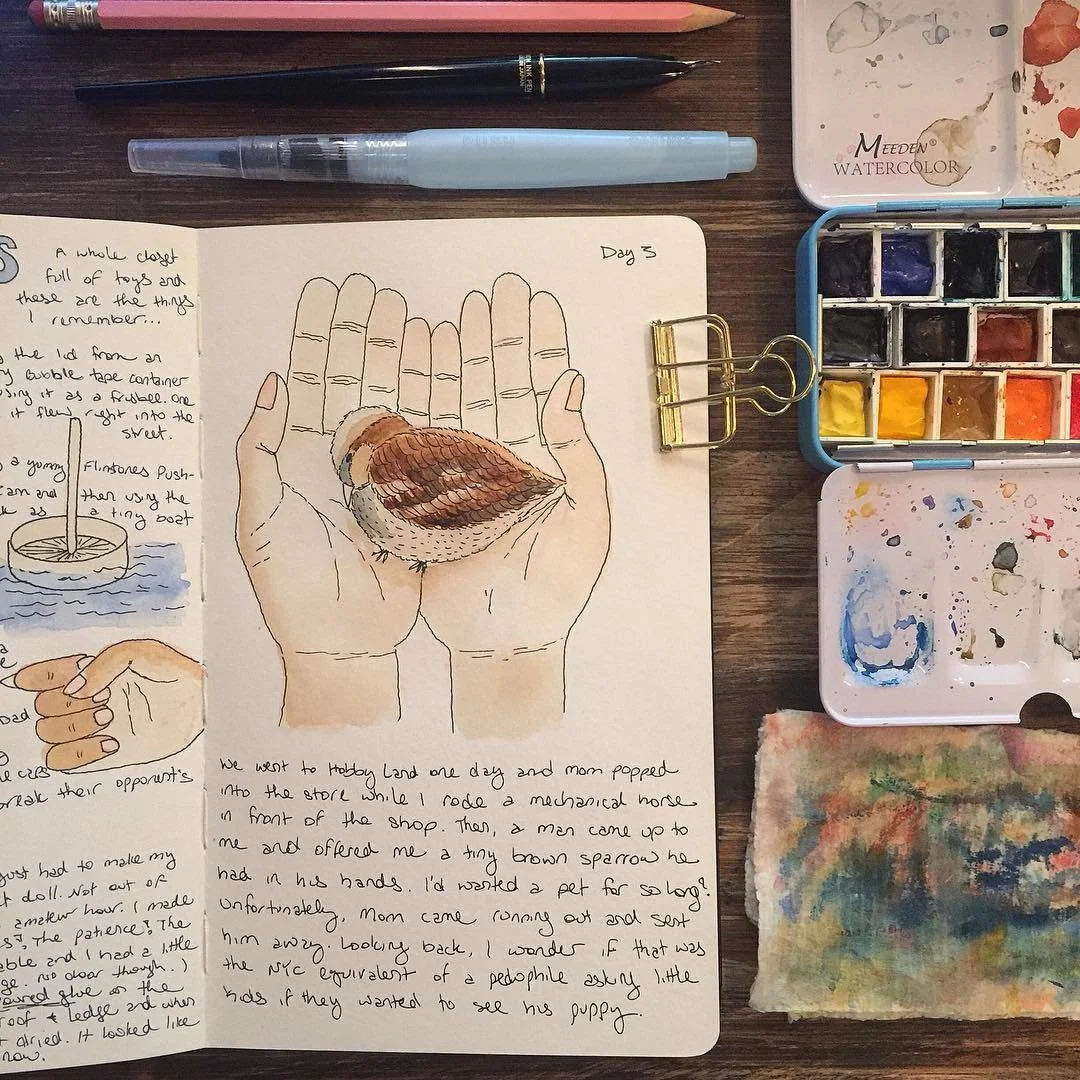 S
A whole closet
full of toys and
these are the things
I remember...
the lid from an
Bubble tape container
using it as a frisbee. One
it flew right into the
street.
a yummy Flintstones Push-
and then using the
as a tiny boat
Dad
caps
break their opponent's
just had to make my
doll. Not out of
amateur hour. I made
The patience? The
able and I had a little
no door though.)
glue on the
roof & ledge and when
it dried. It looked like
snow.
Day 3
We went to Hobby Land one day and mom popped
into the store while I rode a mechanical horse
in front of the shop. Then, a man came up to
me and offered me a tiny brown sparrow he
had in his hands. I'd wanted a pet for so long?
Unfortunately, Mom came running out and sent
him away. Looking back, I wonder if that was
the NYC equivalent of a pedophile asking little
kids if they wanted to see his puppy.
INK PEN
JAPAN
MEEDEN®
WATERCOLOR